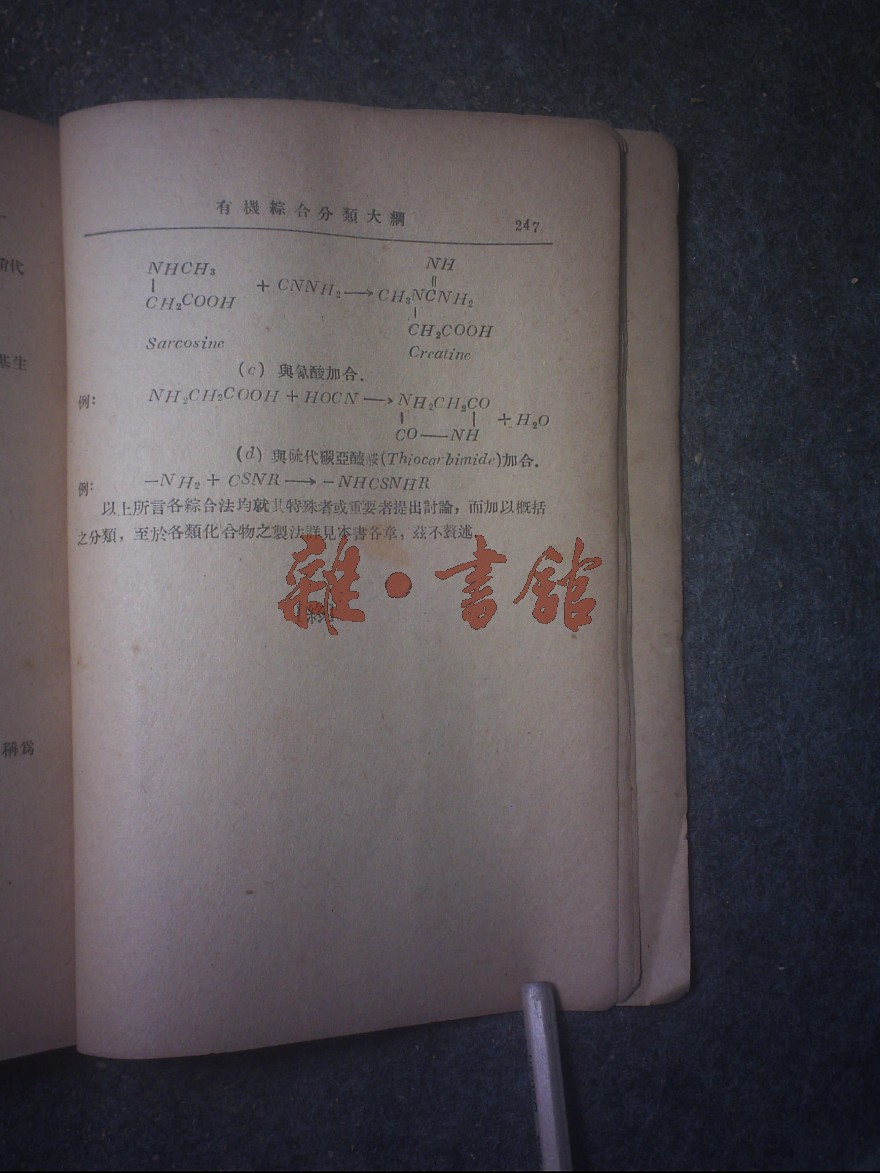 有機綜合分類大綱 247
NHCH₃ NH
| ‖
+ CNNH₂ ⟶ CH₃NCNH₂
CH₂COOH |
CH₂COOH
Sarcosine Creatine
(c) 與氰酸加合.
例: NH₂CH₂COOH + HOCN ⟶ NH₂CH₂CO
| | + H₂O
CO——NH
(d) 與硫代碳亞醯胺(Thiocarbimide)加合.
例: —NH₂ + CSNR ⟶ —NHCSNHR
以上所言各綜合法均就其特殊者或重要者提出討論，而加以概括
之分類，至於各類化合物之製法詳見本書各章，茲不贅述
［終］
雜·書館
代
基生
稱爲